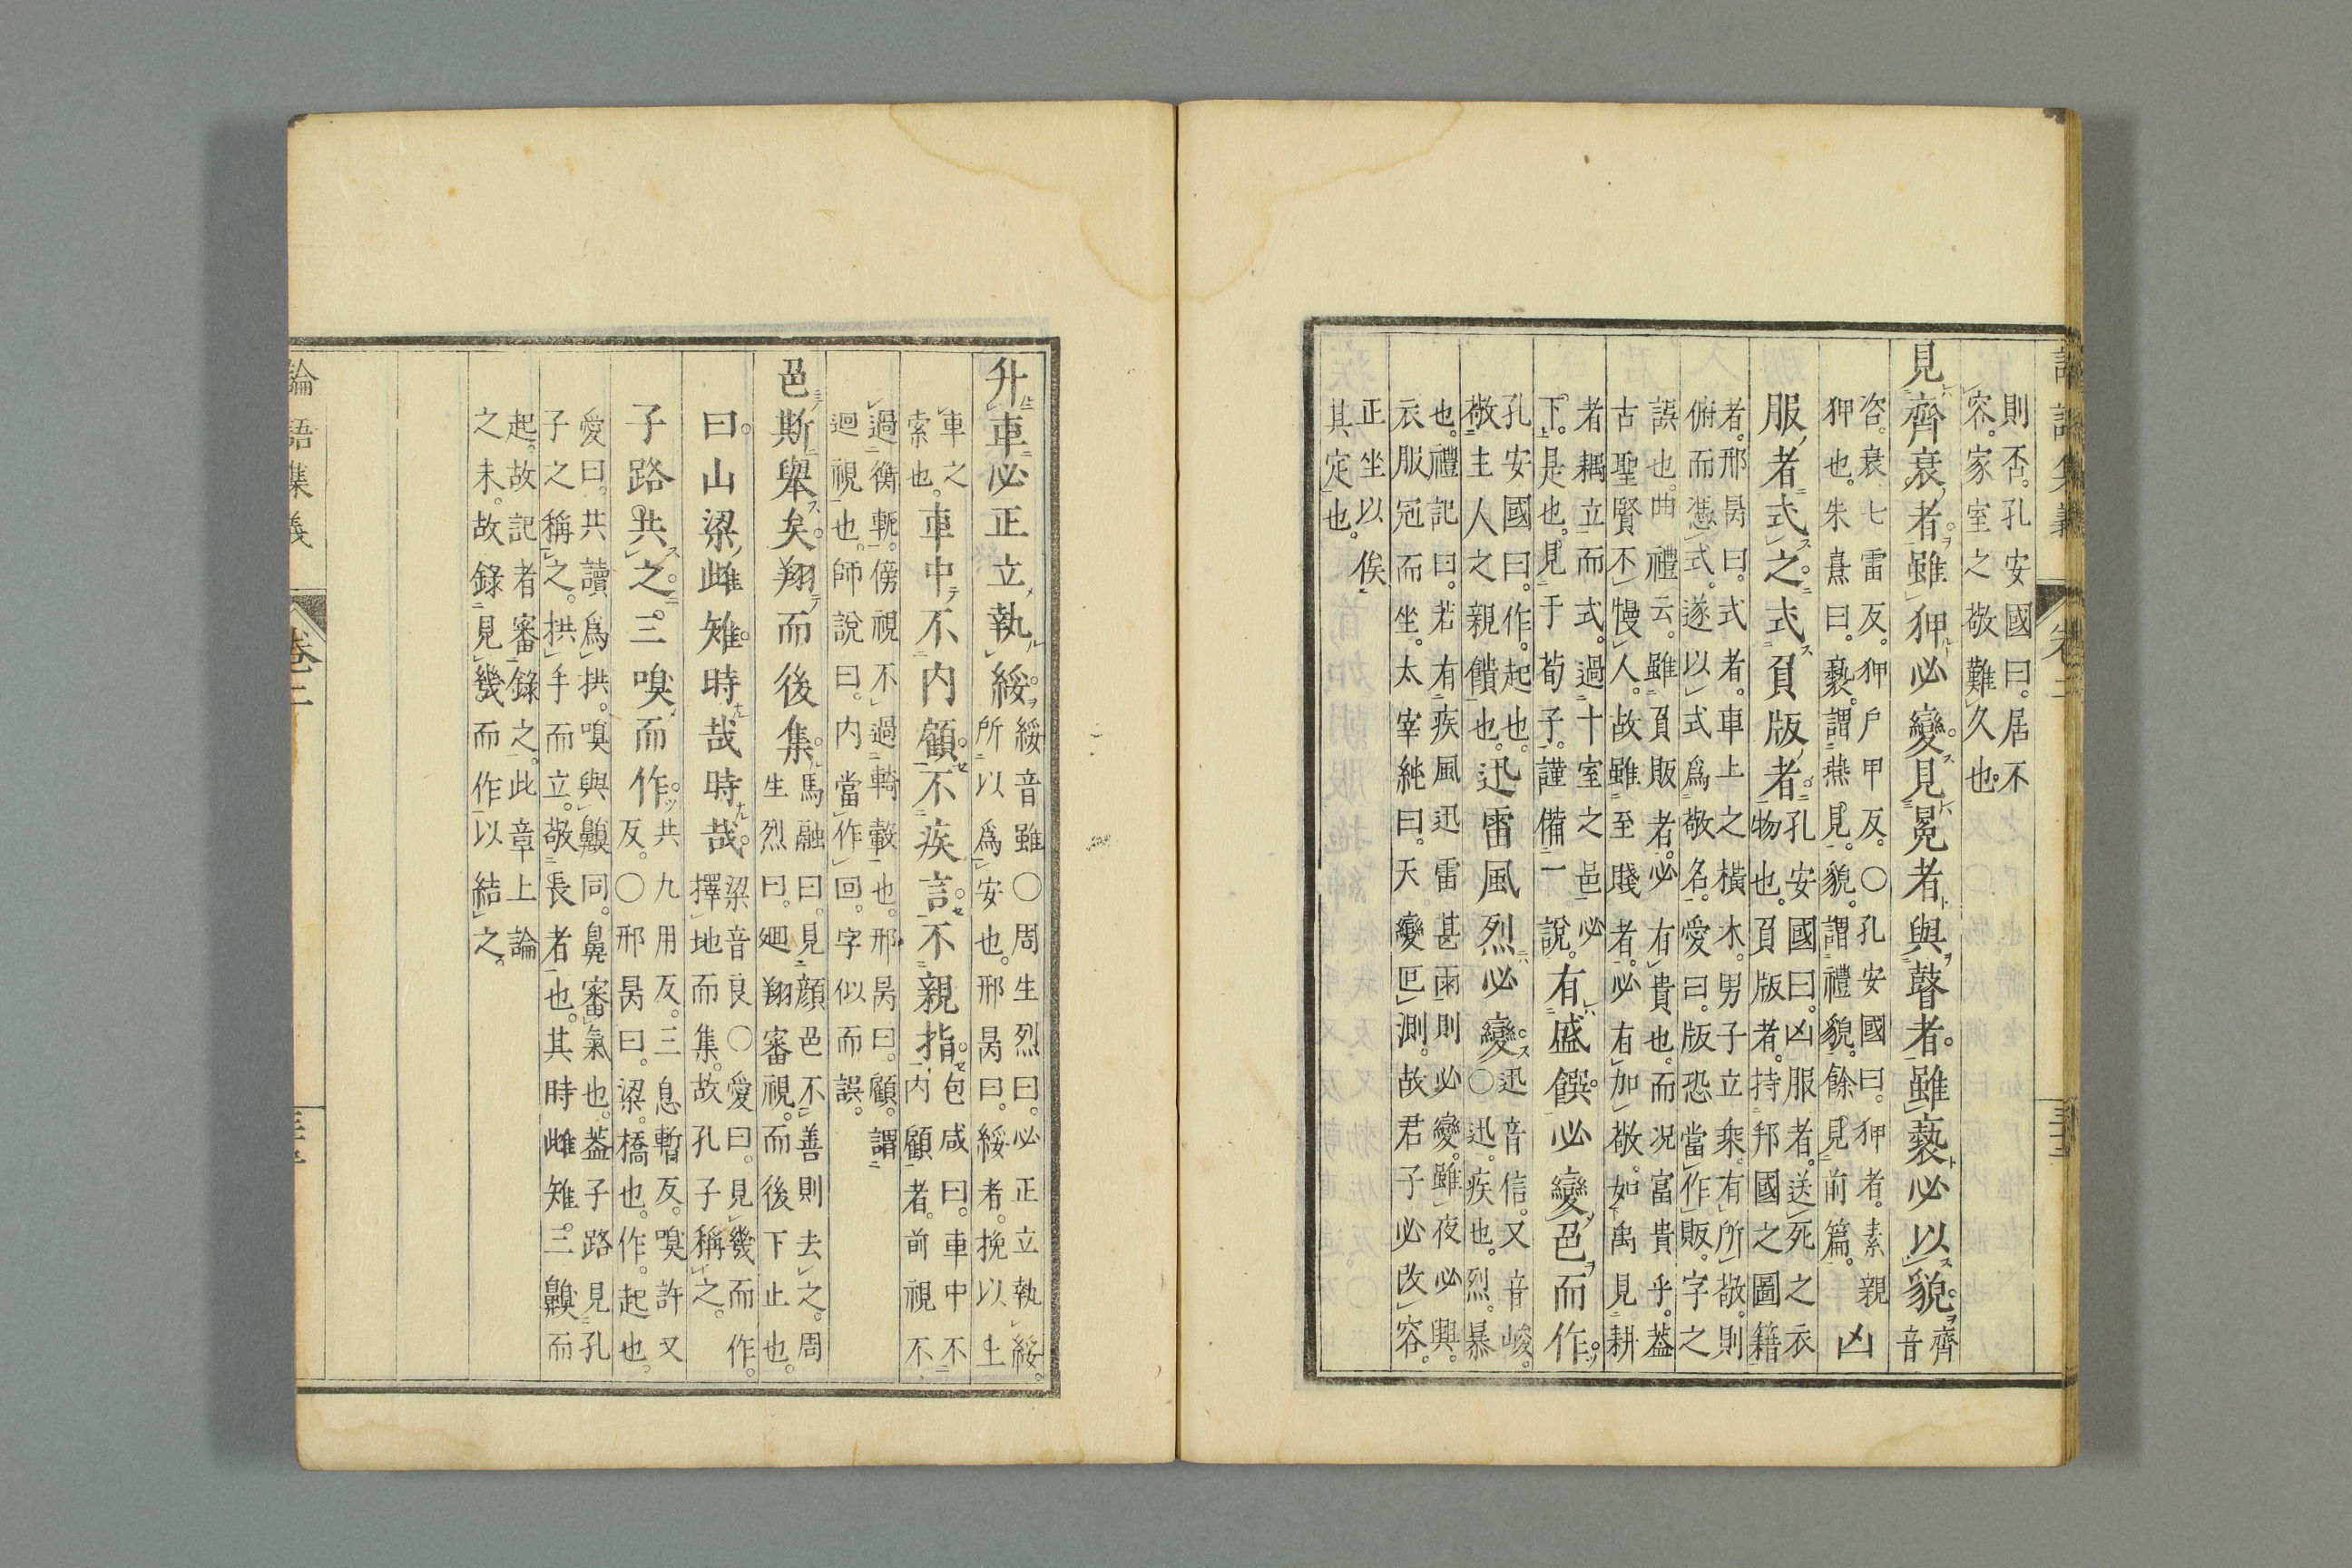 則否。孔安國曰。居不
容。家室之敬難久也。
見齊衰者。雖狎必變。見冕者與瞽者。雖褻必以貌。齊音
咨。衰七雷反。狎戶甲反。○孔安國曰。狎者。素親
狎也。朱熹曰。褻。謂燕見。貌。謂禮貌。餘見前篇。凶
服者式之。式負版者。孔安國曰。凶服者。送死之衣
物也。負版者。持邦國之圖籍
者。邢昺曰。式者。車上之橫木。男子立乘。有所敬。則
俯而憑式。遂以式爲敬名。愛曰。版恐當作販。字之
誤也。曲禮云。雖負販者。必有貴也。而況富貴乎。蓋
古聖賢不慢人。故雖至賤者。必有加敬。如禹見耕
者耦立而式。過十室之邑必
下。是也。見于荀子。謹備一說。有盛饌必變色而作。
孔安國曰。作。起也。
敬主人之親饋也。迅雷風烈必變。迅音信。又音峻。
○迅。疾也。烈。暴
也。禮記曰。若有疾風迅雷甚雨則必變。雖夜必興。
衣服冠而坐。太宰純曰。天變叵測。故君子必改容。
正坐以俟
其定也。
升車必正立執綏。綏音雖○周生烈曰。必正立執綏。
所以爲安也。邢昺曰。綏者。挽以上
車之
索也。車中不內顧。不疾言。不親指。包咸曰。車中不
內顧者。前視不
過衡軛。傍視不過輢轂也。邢昺曰。顧。謂
迴視也。師說曰。內當作回。字似而誤。
色斯舉矣。翔而後集。馬融曰。見顏色不善則去之。周
生烈曰。迴翔審視。而後下止也。
曰。山梁雌雉。時哉時哉。梁音良○愛曰。見幾而作。
擇地而集。故孔子稱之。
子路共之。三嗅而作。共九用反。三息暫反。嗅許又
反。○邢昺曰。梁。橋也。作。起也。
愛曰。共讀爲拱。嗅與齅同。鼻審氣也。蓋子路見孔
子之稱之。拱手而立。敬長者也。其時雌雉。三齅而
起。故記者審錄之。此章上論
之末。故錄見幾而作以結之。
論語集義 卷二